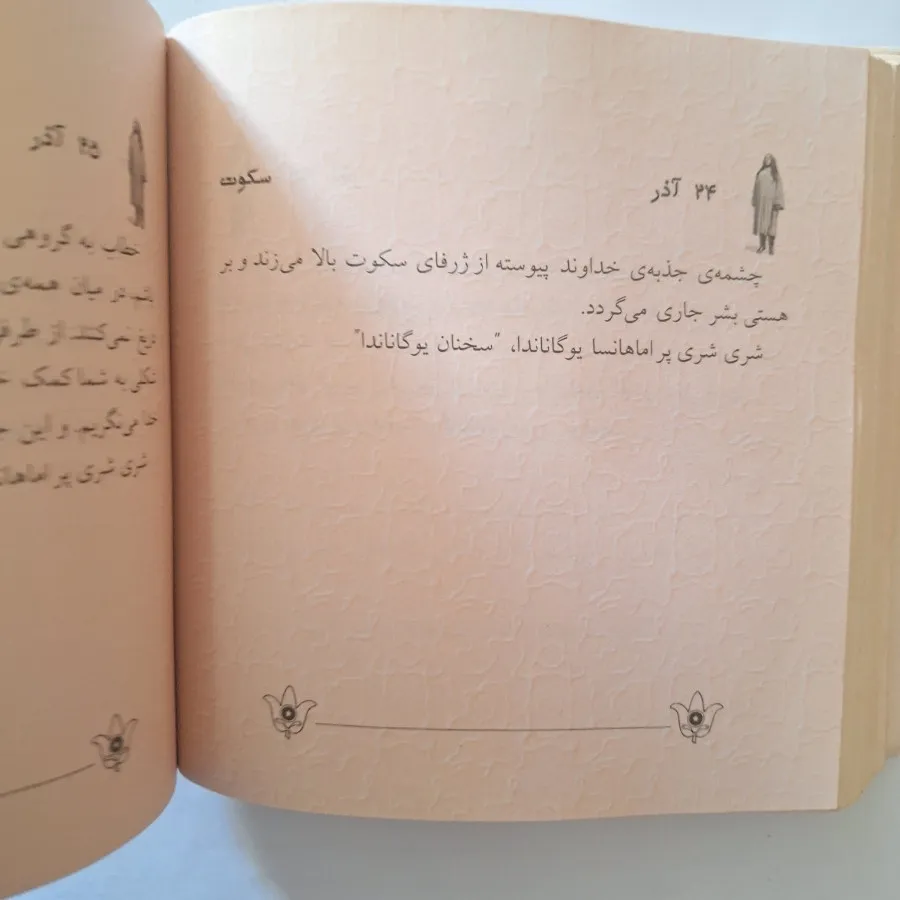 ۲۴ آذر
سکوت
چشمه‌ی جذبه‌ی خداوند پیوسته از ژرفای سکوت بالا می‌زند و بر
هستی بشر جاری می‌گردد.
شری شری پر اماهانسا یوگاناندا، "سخنان یوگاناندا"
۲۵ آذر
خطاب به گروهی
باشم. در میان همه‌ی
دریغ نمی‌کنند. از طرف
شکلی به شما کمک
خدا می‌نگریم. و این
شری شری پر اماهان